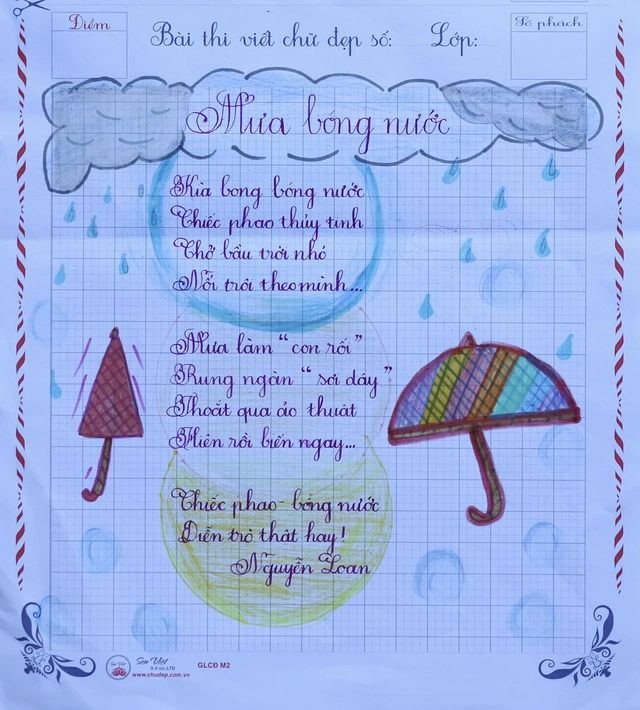 Điểm
Bài thi viết chữ đẹp số: Lớp:
Số phách
Mưa bóng nước
Kìa bong bóng nước
Chiếc phao thủy tinh
Chở bầu trời nhỏ
Nổi trôi theo mình...
Mưa làm "con rối"
Rung ngàn "sợi dây"
Thoắt qua ảo thuật
Hiên rồi biến ngay...
Chiếc phao - bóng nước
Diễn trò thật hay!
Nguyễn Loan
Sen Việt
S.V co.,LTD
www.chudep.com.vn
GLCĐ M2